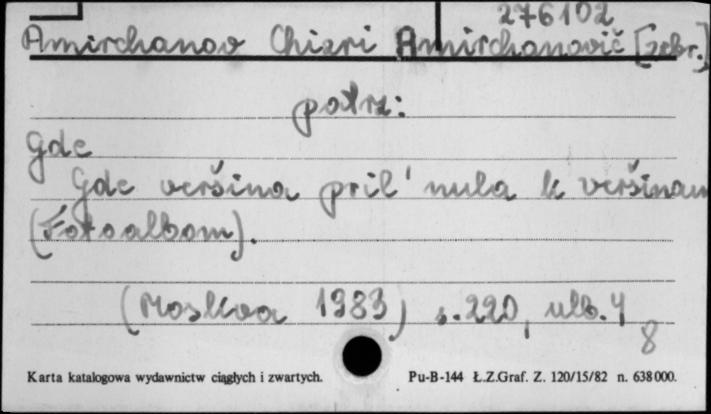 276102
Amirchanov Chizri Amirchanovič [zebr.]
patrz:
Gde
Gde veršina pril'nula k veršinam
(Fotoalbom).
(Moskva 1983) s. 220, nlb. 4
8
Karta katalogowa wydawnictw ciągłych i zwartych.
Pu-B-144 Ł.Z.Graf. Z. 120/15/82 n. 638000.